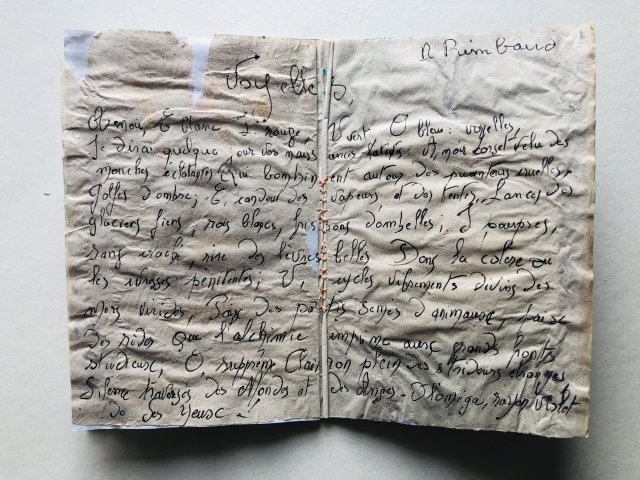 A Rimbaud
Voyelles,
A noir, E blanc, I rouge, U vert O bleu : voyelles,
Je dirai quelque jour vos naissances latentes A, noir corset velu des
mouches éclatantes Qui bombinent autour des puanteurs cruelles,
Golfes d'ombre; E, candeur des vapeurs et des tentes, Lances des
glaciers fiers, rois blancs, frissons d'ombelles; I, pourpres,
sang craché, rire des lèvres belles Dans la colère ou
les ivresses pénitentes; U, cycles, vibrements divins des
mers virides, Paix des pâtis semés d'animaux, paix
des rides Que l'alchimie imprime aux grands fronts
studieux; O, suprême Clairon plein des strideurs étranges
Silence traversés des Mondes et des Anges - O l'Omega, rayon violet
de Ses Yeux - !